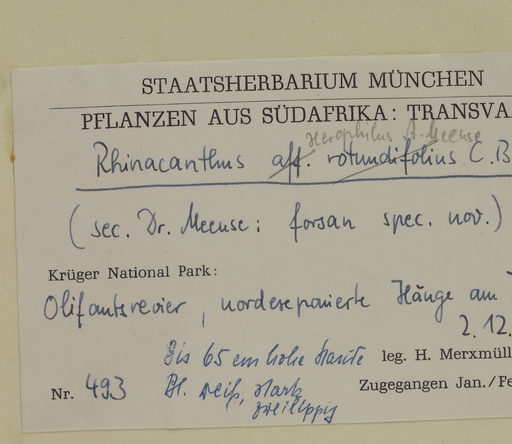 STAATSHERBARIUM MÜNCHEN
PFLANZEN AUS SÜDAFRIKA: TRANSVA
xerophilus A. Meeuse
Rhinacanthus aff. rotundifolius C. B
(sec. Dr. Meeuse: forsan spec. nov.)
Krüger National Park:
Olifantsrevier, nordexponierte Hänge am
2. 12.
Bis 65 cm hohe Staude leg. H. Merxmüll
Nr. 493 Bl. weiß, stark Zugegangen Jan./Fe
zweilippig